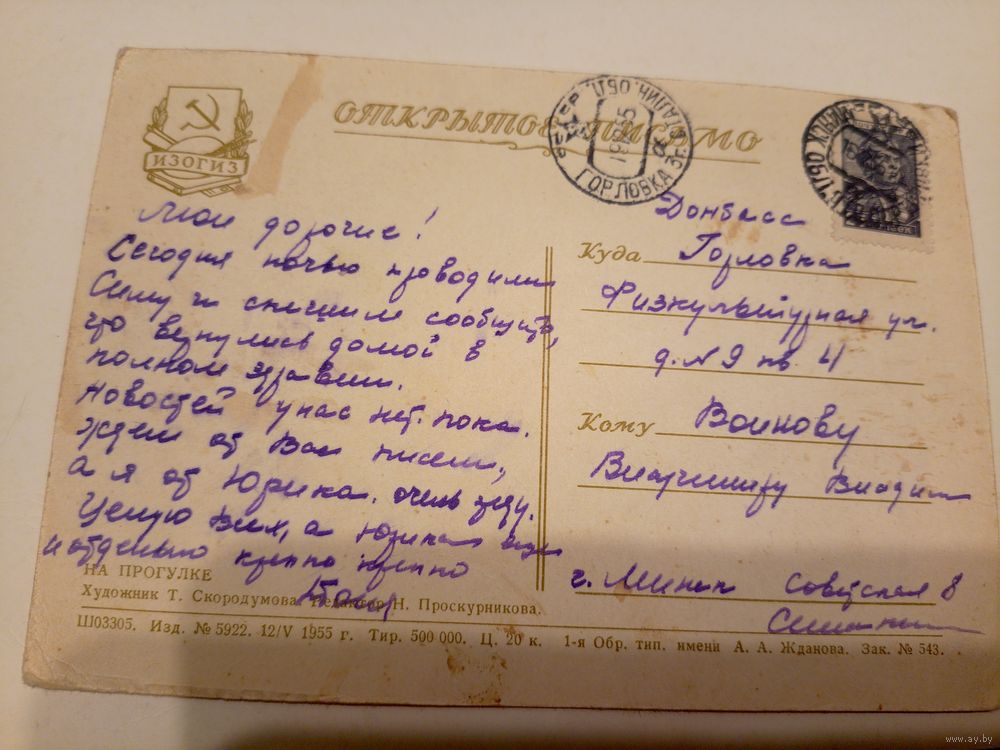 ИЗОГИЗ
ОТКРЫТОЕ ПИСЬМО
СССР
ГОРЛОВКА
Мои дорогие!
Сегодня ночью проводили
Симу и спешим сообщить,
что вернулись домой в
полном здравии.
Новостей у нас нет пока.
Ждем от Вас писем,
а я от Юрика. очень жду.
Целую Всех, а Юрика
и отдельно крепко крепко
Донбасс
Куда Горловка
Физкультурная ул.
д. N 9 кв. 4
Кому Воинову
Владимиру
г. Минск Советская 8
НА ПРОГУЛКЕ
Художник Т. Скородумова. Редактор Н. Проскурникова.
Ш03305. Изд. № 5922. 12/V 1955 г. Тир. 500 000. Ц. 20 к. 1-я Обр. тип. имени А. А. Жданова. Зак. № 543.
www.ay.by